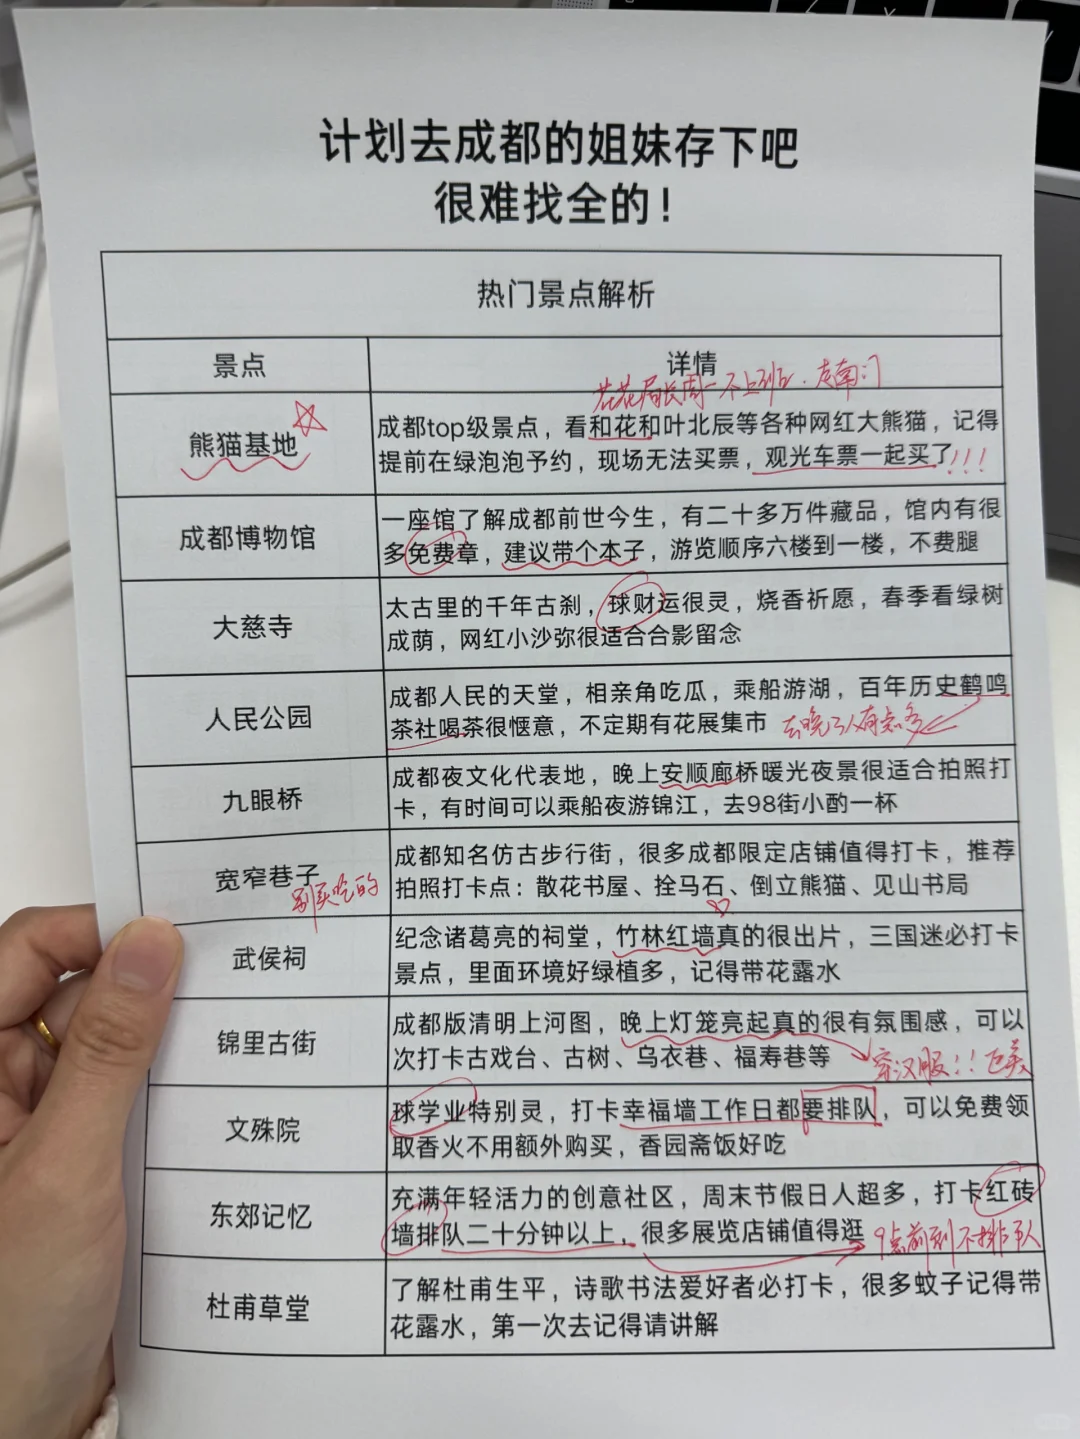 计划去成都的姐妹存下吧
很难找全的！
热门景点解析
景点
详情
花花局长周一不上班．走南门
熊猫基地
成都top级景点，看和花和叶北辰等各种网红大熊猫，记得
提前在绿泡泡予约，现场无法买票，观光车票一起买了!!!
成都博物馆
一座馆了解成都前世今生，有二十多万件藏品，馆内有很
多免费章，建议带个本子，游览顺序六楼到一楼，不费腿
大慈寺
太古里的千年古刹，球财运很灵，烧香祈愿，春季看绿树
成荫，网红小沙弥很适合合影留念
人民公园
成都人民的天堂，相亲角吃瓜，乘船游湖，百年历史鹤鸣
茶社喝茶很惬意，不定期有花展集市
去晚了人有点多
九眼桥
成都夜文化代表地，晚上安顺廊桥暖光夜景很适合拍照打
卡，有时间可以乘船夜游锦江，去98街小酌一杯
宽窄巷子
别买吃的
成都知名仿古步行街，很多成都限定店铺值得打卡，推荐
拍照打卡点：散花书屋、拴马石、倒立熊猫、见山书局
武侯祠
纪念诸葛亮的祠堂，竹林红墙真的很出片，三国迷必打卡
景点，里面环境好绿植多，记得带花露水
锦里古街
成都版清明上河图，晚上灯笼亮起真的很有氛围感，可以
次打卡古戏台、古树、乌衣巷、福寿巷等
穿汉服！！巨美
文殊院
球学业特别灵，打卡幸福墙工作日都要排队，可以免费领
取香火不用额外购买，香园斋饭好吃
东郊记忆
充满年轻活力的创意社区，周末节假日人超多，打卡红砖
墙排队二十分钟以上，很多展览店铺值得逛
9点前到不排队
杜甫草堂
了解杜甫生平，诗歌书法爱好者必打卡，很多蚊子记得带
花露水，第一次去记得请讲解